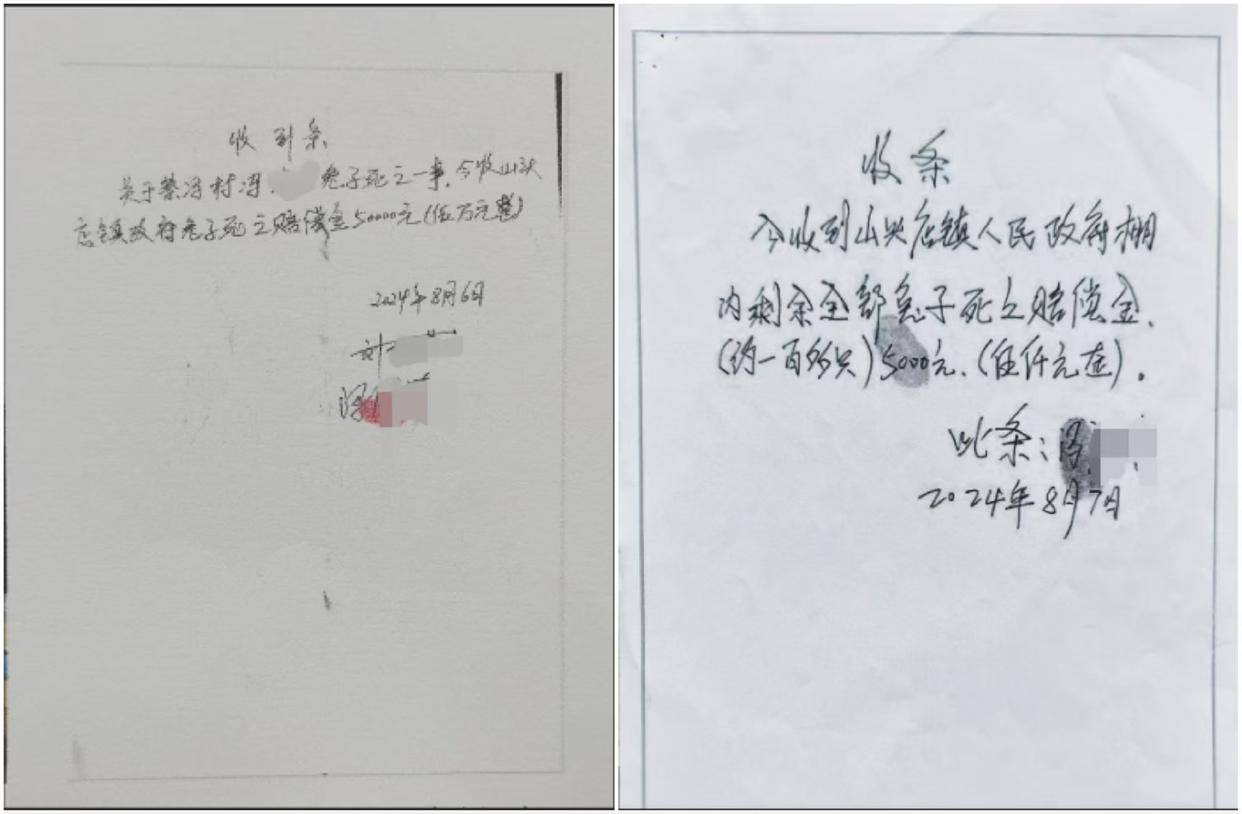 收到条
关于蔡冯村冯 兔子死之一事，今收山头
店镇政府兔子死之赔偿金50000元(伍万元整)
2024年8月6日
刘
冯
收条
今收到山头店镇人民政府棚
内剩余全部兔子死之赔偿金、
(约一百多只)5000元、(伍仟元整)。
收条：冯
2024年8月7日